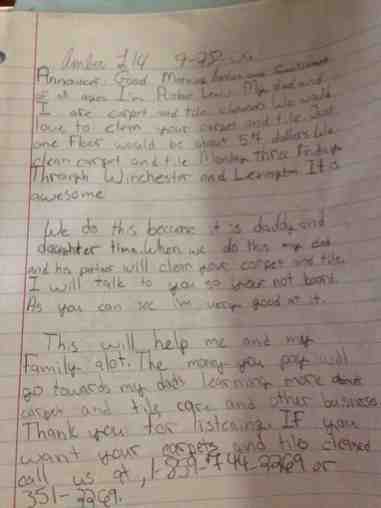 Amber
Announcer: Good Morning
of all ages I'm Robin Lewis My dad and
I are carpet and tile cleaners We would
love to clean your carpet and tile Just
one floor would be about 54 dollars We
clean carpet and tile Monday Three Friday
Through Winchester and Lexington It is
awesome
We do this because it is daddy and
daughter time. When we do this my dad
and his partner will clean your carpet and tile.
I will talk to you so your not bored.
As you can see I'm very good at it.
This will help me and my
Family alot. The money you pay will
go towards my dads learning more about
carpet and tile care and other business
Thank you for listening. If you
want your carpets and tile cleaned
call us at, 1-859-744-2269 or
351-2269.